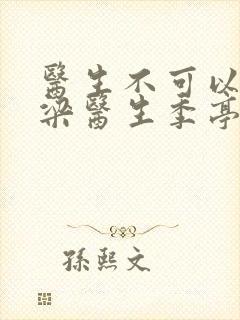 醫生不可以
梁醫生季亭
孫熙文